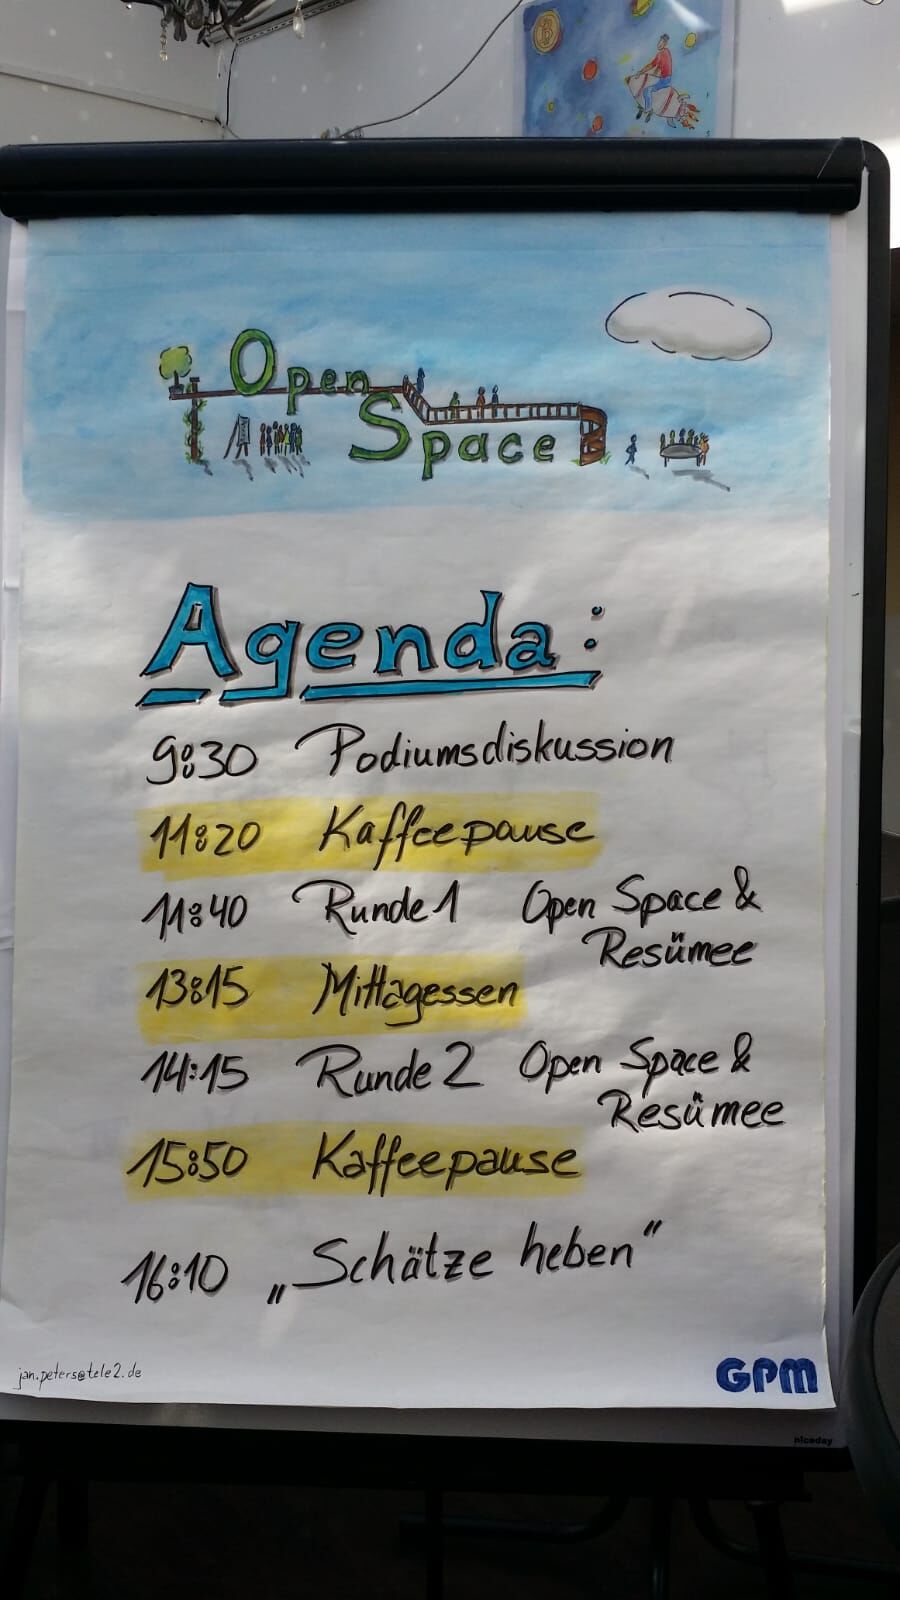 Open
Space
Agenda:
9:30 Podiumsdiskussion
11:20 Kaffeepause
11:40 Runde 1 Open Space &
Resümee
13:15 Mittagessen
14:15 Runde 2 Open Space &
Resümee
15:50 Kaffeepause
16:10 „Schätze heben“
jan.peters@tele2.de
GPM
niceday